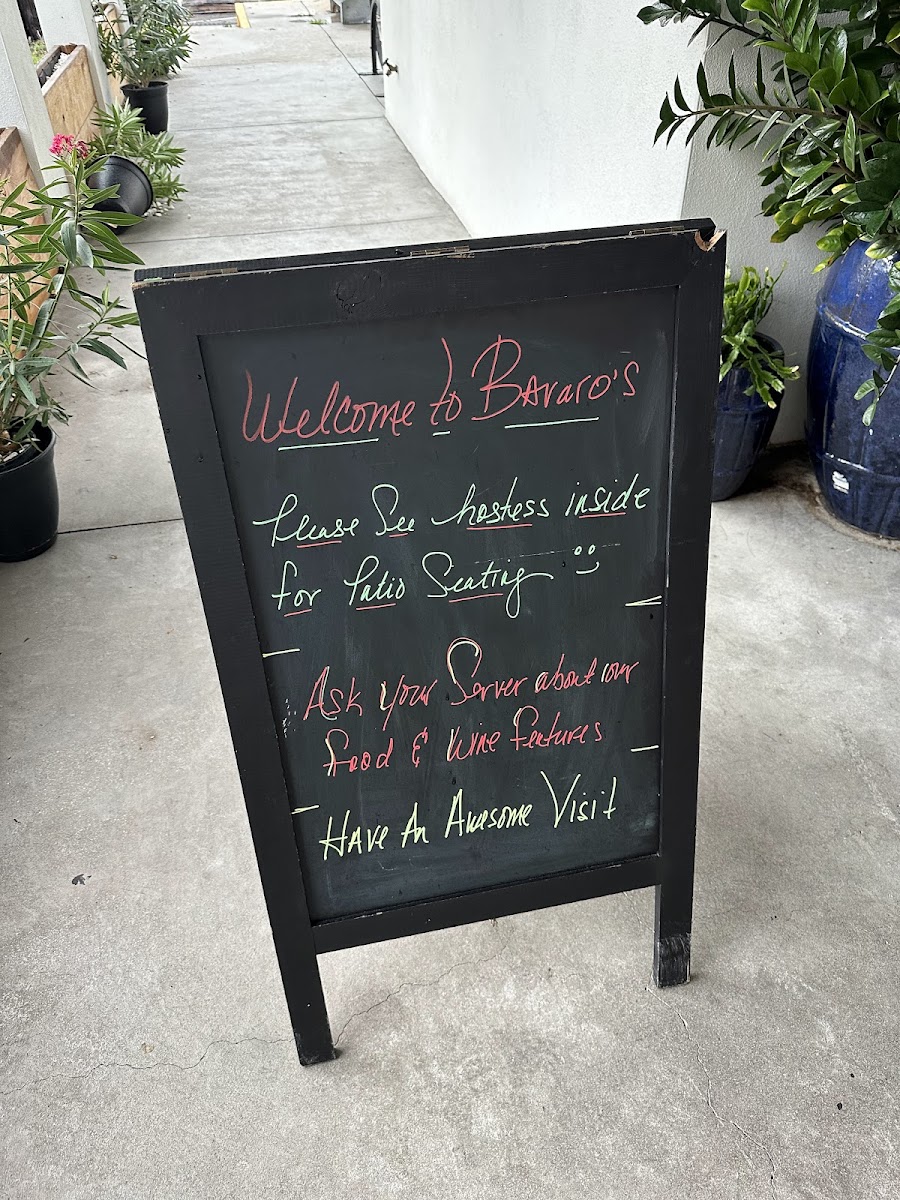 Welcome to Bavaro's
Please See hostess inside
for Patio Seating
Ask your Server about our
food & Wine features
Have An Awesome Visit